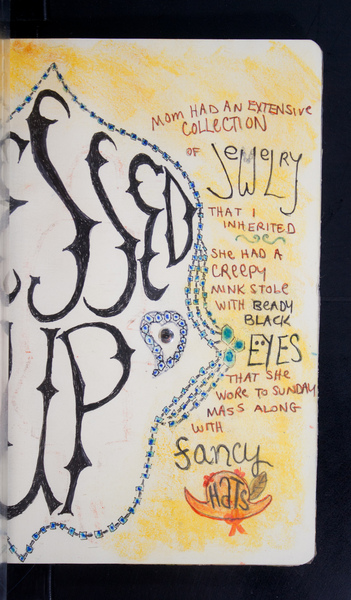 ESSED
UP
MOM HAD AN EXTENSIVE
COLLECTION
OF JEWELRY
THAT I
INHERITED
SHE HAD A
CREEPY
MINK STOLE
WITH BEADY
BLACK
EYES
THAT SHE
WORE TO SUNDAY
MASS ALONG
WITH
fancy
HATS